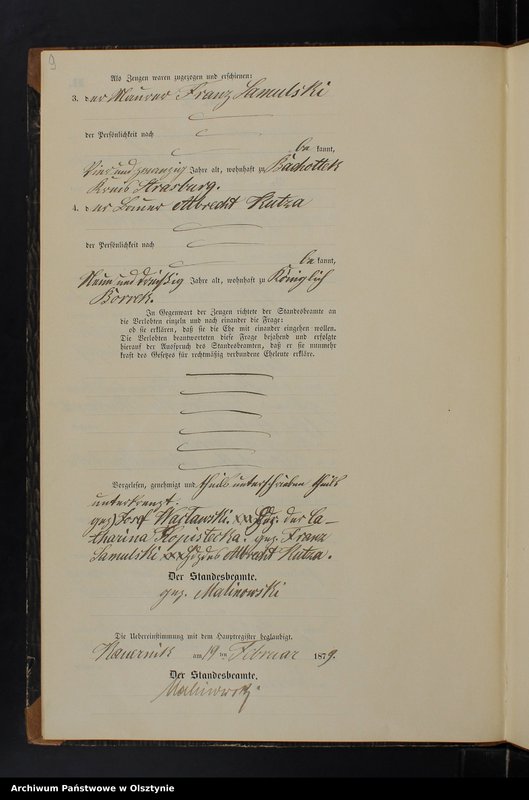 9
Als Zeugen waren zugezogen und erschienen:
3. der Maurer Franz Samulski
der Persönlichkeit nach
be kannt,
Vier und zwanzig Jahre alt, wohnhaft zu Bachottek
Kreis Strasburg.
4. der Bauer Albrecht Kutza
der Persönlichkeit nach
be kannt,
Neun und dreißig Jahre alt, wohnhaft zu Königlich
Borrek.
In Gegenwart der Zeugen richtete der Standesbeamte an
die Verlobten einzeln und nach einander die Frage:
ob sie erklären, daß sie die Ehe mit einander eingehen wollen.
Die Verlobten beantworteten diese Frage bejahend und erfolgte
hierauf der Ausspruch des Standesbeamten, daß er sie nunmehr
kraft des Gesetzes für rechtmäßig verbundene Eheleute erkläre.
Vorgelesen, genehmigt und theils unterschrieben theils
unterkreuzt:
gez. Josef Waclawski. xxx Hdz. der Ca-
tharina Kopistecka. gez. Franz
Samulski xxx Hdz des Albrecht Kutza.
Der Standesbeamte.
gez. Malinowski
Die Uebereinstimmung mit dem Hauptregister beglaubigt.
Kauernik am 19 ten Februar 1879.
Der Standesbeamte.
Malinowski
Archiwum Państwowe w Olsztynie